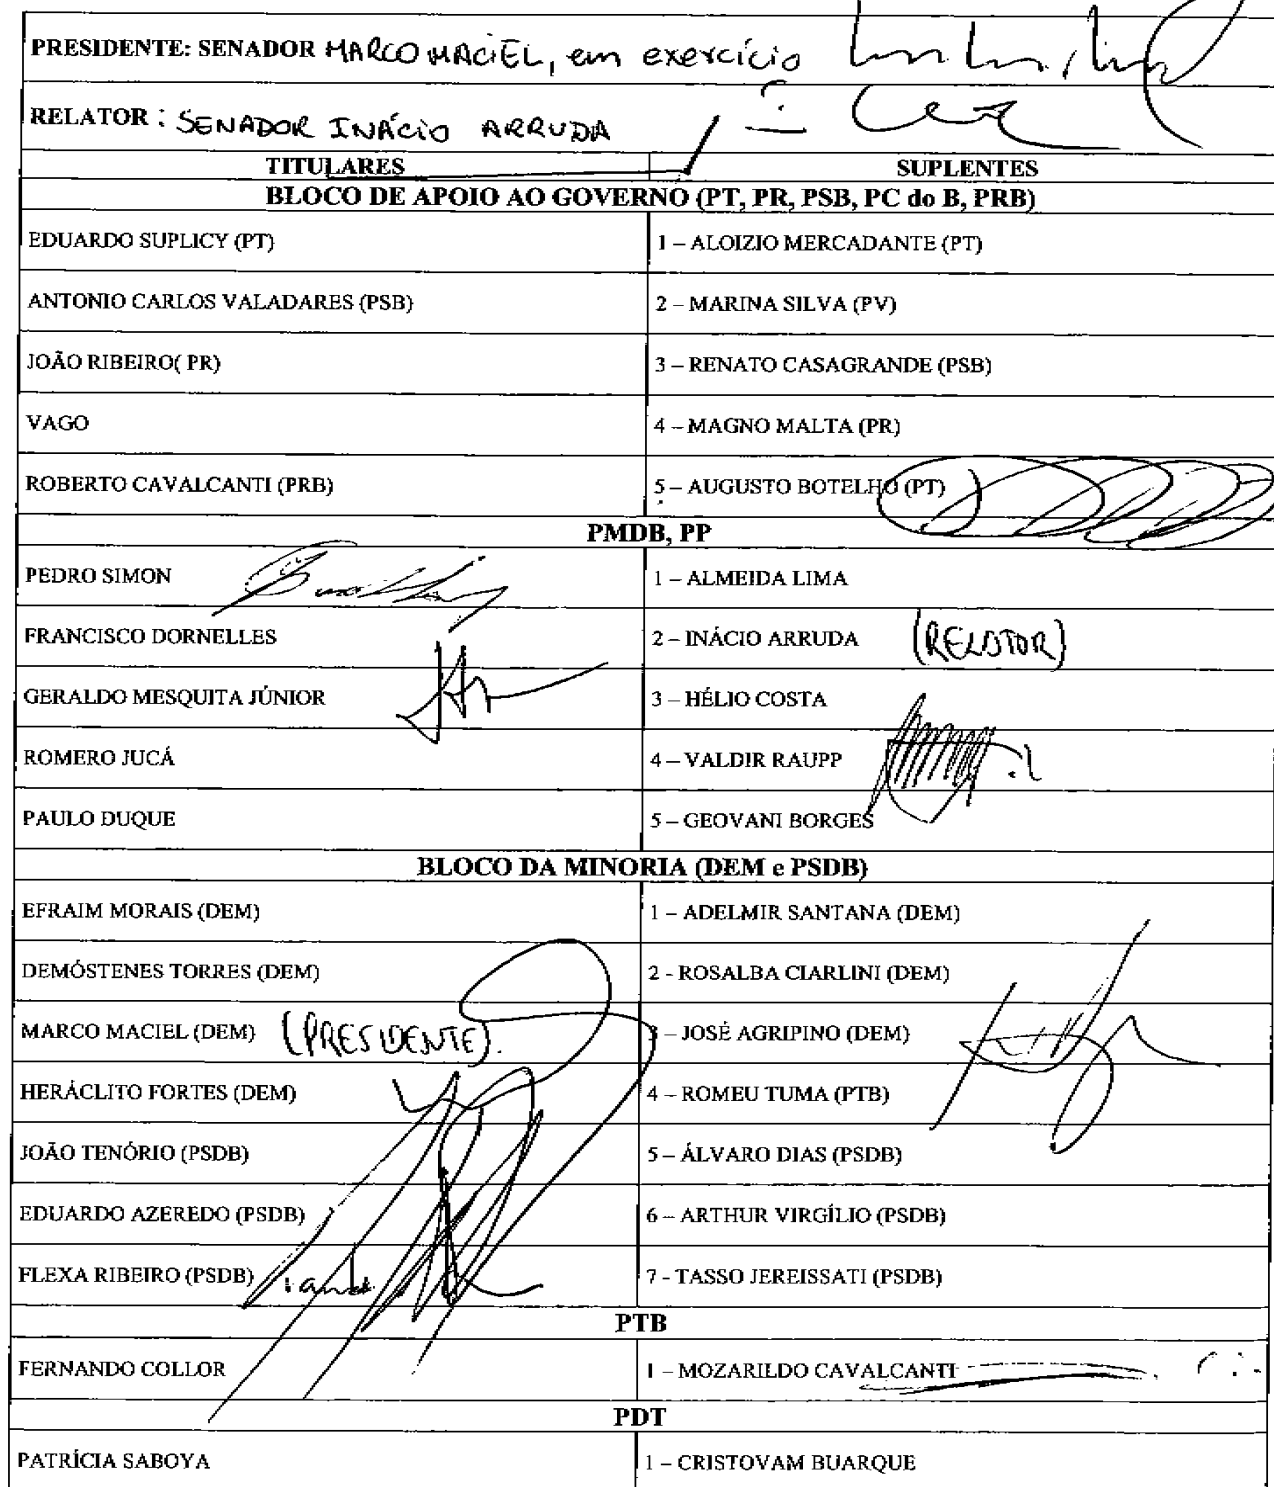 PRESIDENTE: SENADOR MARCO MACIEL, em exercício
RELATOR : SENADOR INÁCIO ARRUDA
TITULARES SUPLENTES
BLOCO DE APOIO AO GOVERNO (PT, PR, PSB, PC do B, PRB)
EDUARDO SUPLICY (PT) 1 – ALOIZIO MERCADANTE (PT)
ANTONIO CARLOS VALADARES (PSB) 2 – MARINA SILVA (PV)
JOÃO RIBEIRO( PR) 3 – RENATO CASAGRANDE (PSB)
VAGO 4 – MAGNO MALTA (PR)
ROBERTO CAVALCANTI (PRB) 5 – AUGUSTO BOTELHO (PT)
PMDB, PP
PEDRO SIMON 1 – ALMEIDA LIMA
FRANCISCO DORNELLES 2 – INÁCIO ARRUDA (RELATOR)
GERALDO MESQUITA JÚNIOR 3 – HÉLIO COSTA
ROMERO JUCÁ 4 – VALDIR RAUPP
PAULO DUQUE 5 – GEOVANI BORGES
BLOCO DA MINORIA (DEM e PSDB)
EFRAIM MORAIS (DEM) 1 – ADELMIR SANTANA (DEM)
DEMÓSTENES TORRES (DEM) 2 - ROSALBA CIARLINI (DEM)
MARCO MACIEL (DEM) (PRESIDENTE). 3 – JOSÉ AGRIPINO (DEM)
HERÁCLITO FORTES (DEM) 4 – ROMEU TUMA (PTB)
JOÃO TENÓRIO (PSDB) 5 – ÁLVARO DIAS (PSDB)
EDUARDO AZEREDO (PSDB) 6 – ARTHUR VIRGÍLIO (PSDB)
FLEXA RIBEIRO (PSDB) 7 - TASSO JEREISSATI (PSDB)
PTB
FERNANDO COLLOR 1 – MOZARILDO CAVALCANTI
PDT
PATRÍCIA SABOYA 1 – CRISTOVAM BUARQUE